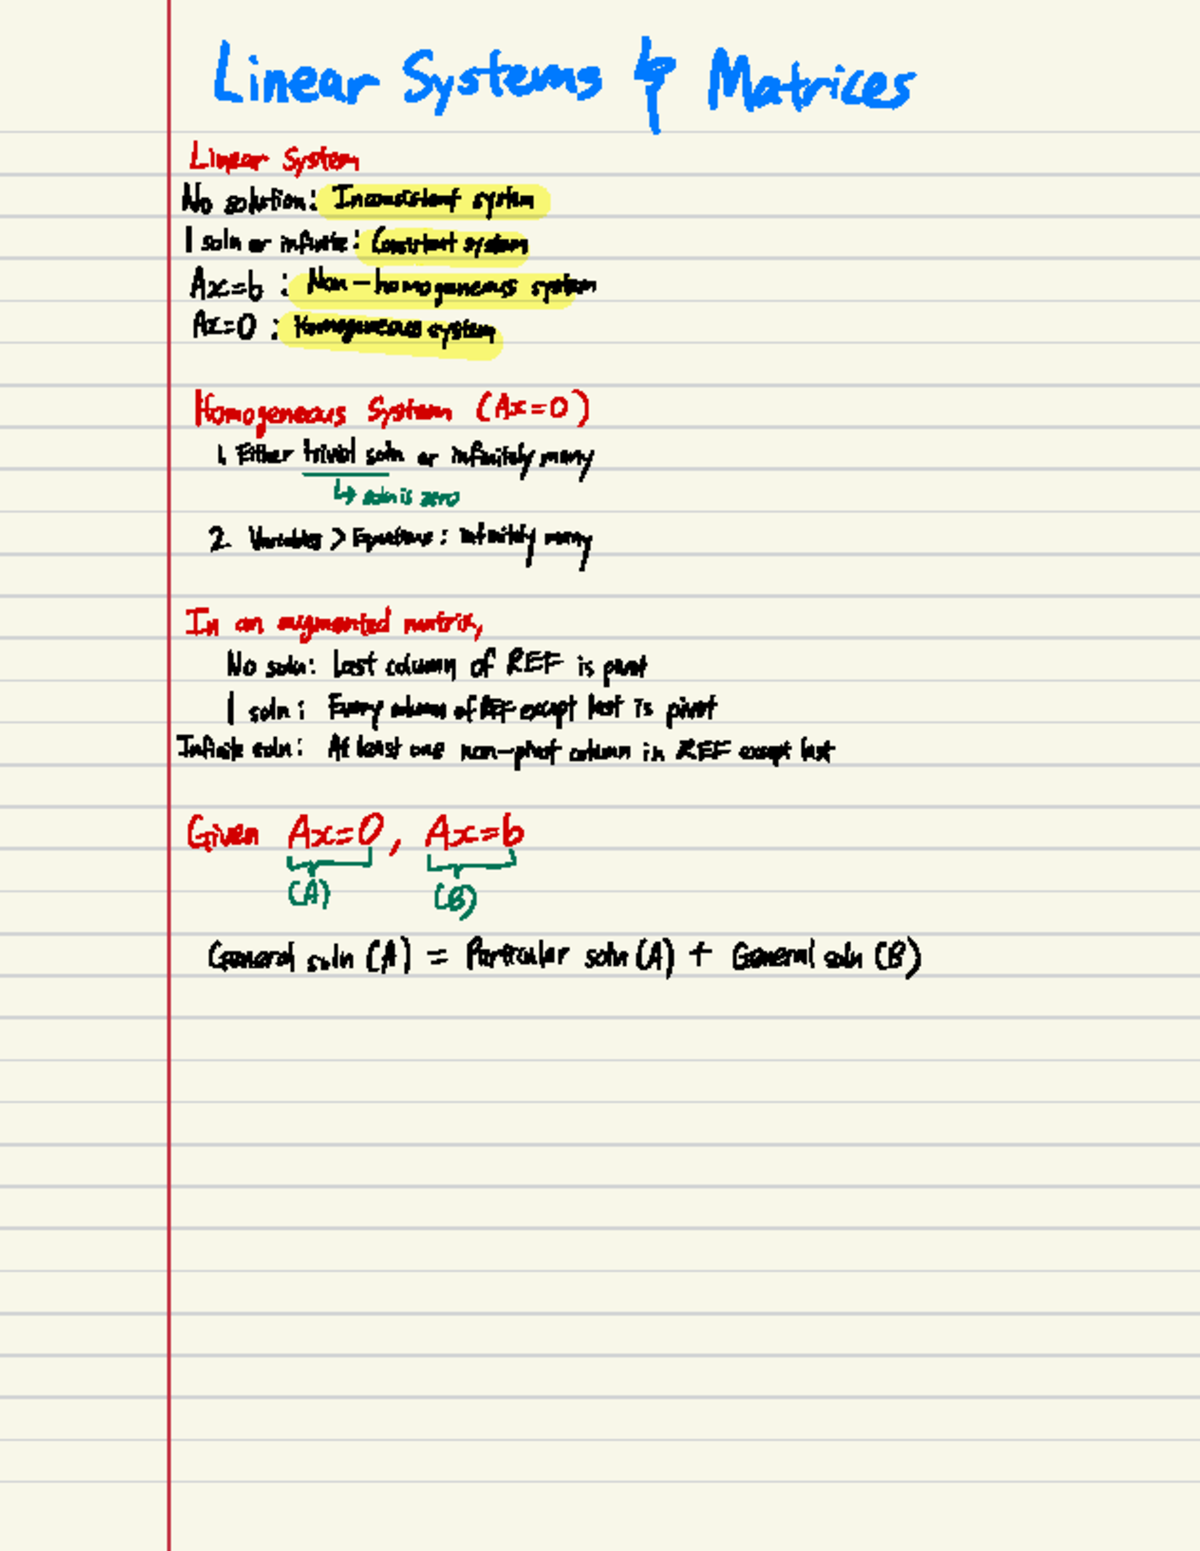 Linear Systems & Matrices
Linear System
No solution: Inconsistent system
1 soln or infinite: Consistent system
Ax=b : Non-homogeneous system
Ax=0 : Homogeneous system
Homogeneous System (Ax=0)
1. Either trivial soln or infinitely many
↳ soln is zero
2. Variables > Equations: infinitely many
In an augmented matrix,
No soln: Last column of REF is pivot
1 soln: Every column of REF except last is pivot
Infinite soln: At least one non-pivot column in REF except last
Given Ax=0, Ax=b
(A) (B)
General soln (A) = Particular soln (A) + General soln (B)